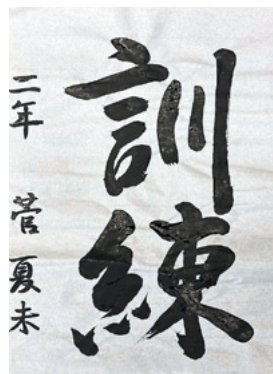 訓練
二年 菅 夏未